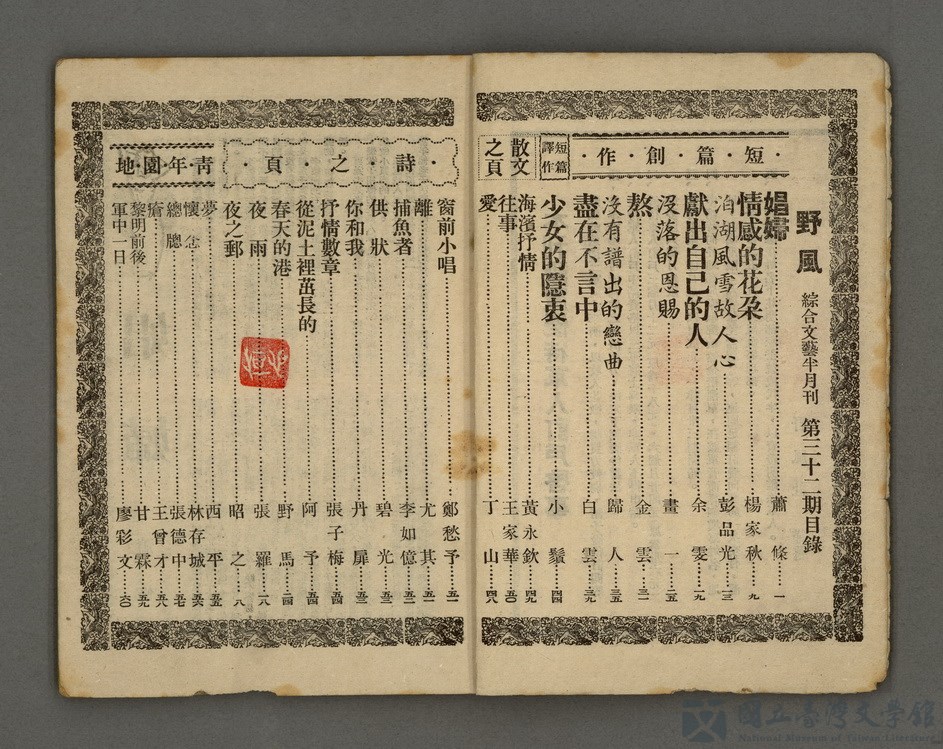 野風 綜合文藝半月刊 第三十二期目錄
短・篇・創・作
娼婦 蕭條 一
情感的花朶 楊家秋 九
泊湖風雪故人心 彭品光 一三
獻出自己的人 余雯 一九
沒落的恩賜 畫一 二五
熬 金雲 三一
沒有譜出的戀曲 歸人 三五
盡在不言中 白雲 三九
短篇譯作
少女的隱衷 小鬚 四四
散文之頁
海濱抒情 黃永欽 四九
往事 王家華 五〇
愛 丁山 四八
詩・之・頁
窗前小唱 鄭愁予 五一
離 尤其 五一
捕魚者 李如億 五二
供狀 碧光 五三
你和我 丹扉 五三
抒情數章 張子梅 五四
從泥土裡茁長的 阿予 五四
春天的港 野馬 二四
夜雨 張羅 一八
夜之郵 昭之 八
靑・年・園・地
夢 西平 五五
懷念 林存城 五六
總廳 張德中 五七
瘡 王曾才 五八
黎明前後 甘霖 五九
軍中一日 廖彩文 六〇
國立臺灣文學館
National Museum of Taiwan Literature